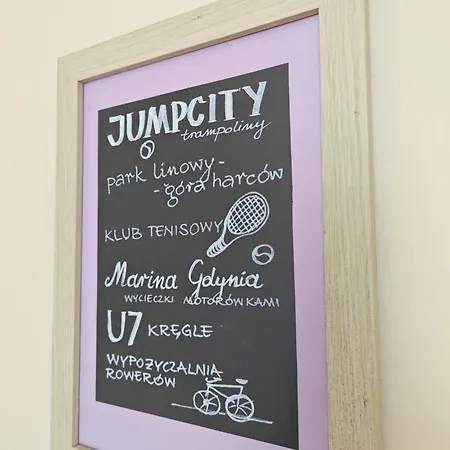 JUMPCITY
trampoliny
park linowy -
- góra harców
KLUB TENISOWY
Marina Gdynia
WYCIECZKI MOTORÓWKAMI
U7 KRĘGLE
WYPOŻYCZALNIA
ROWERÓW